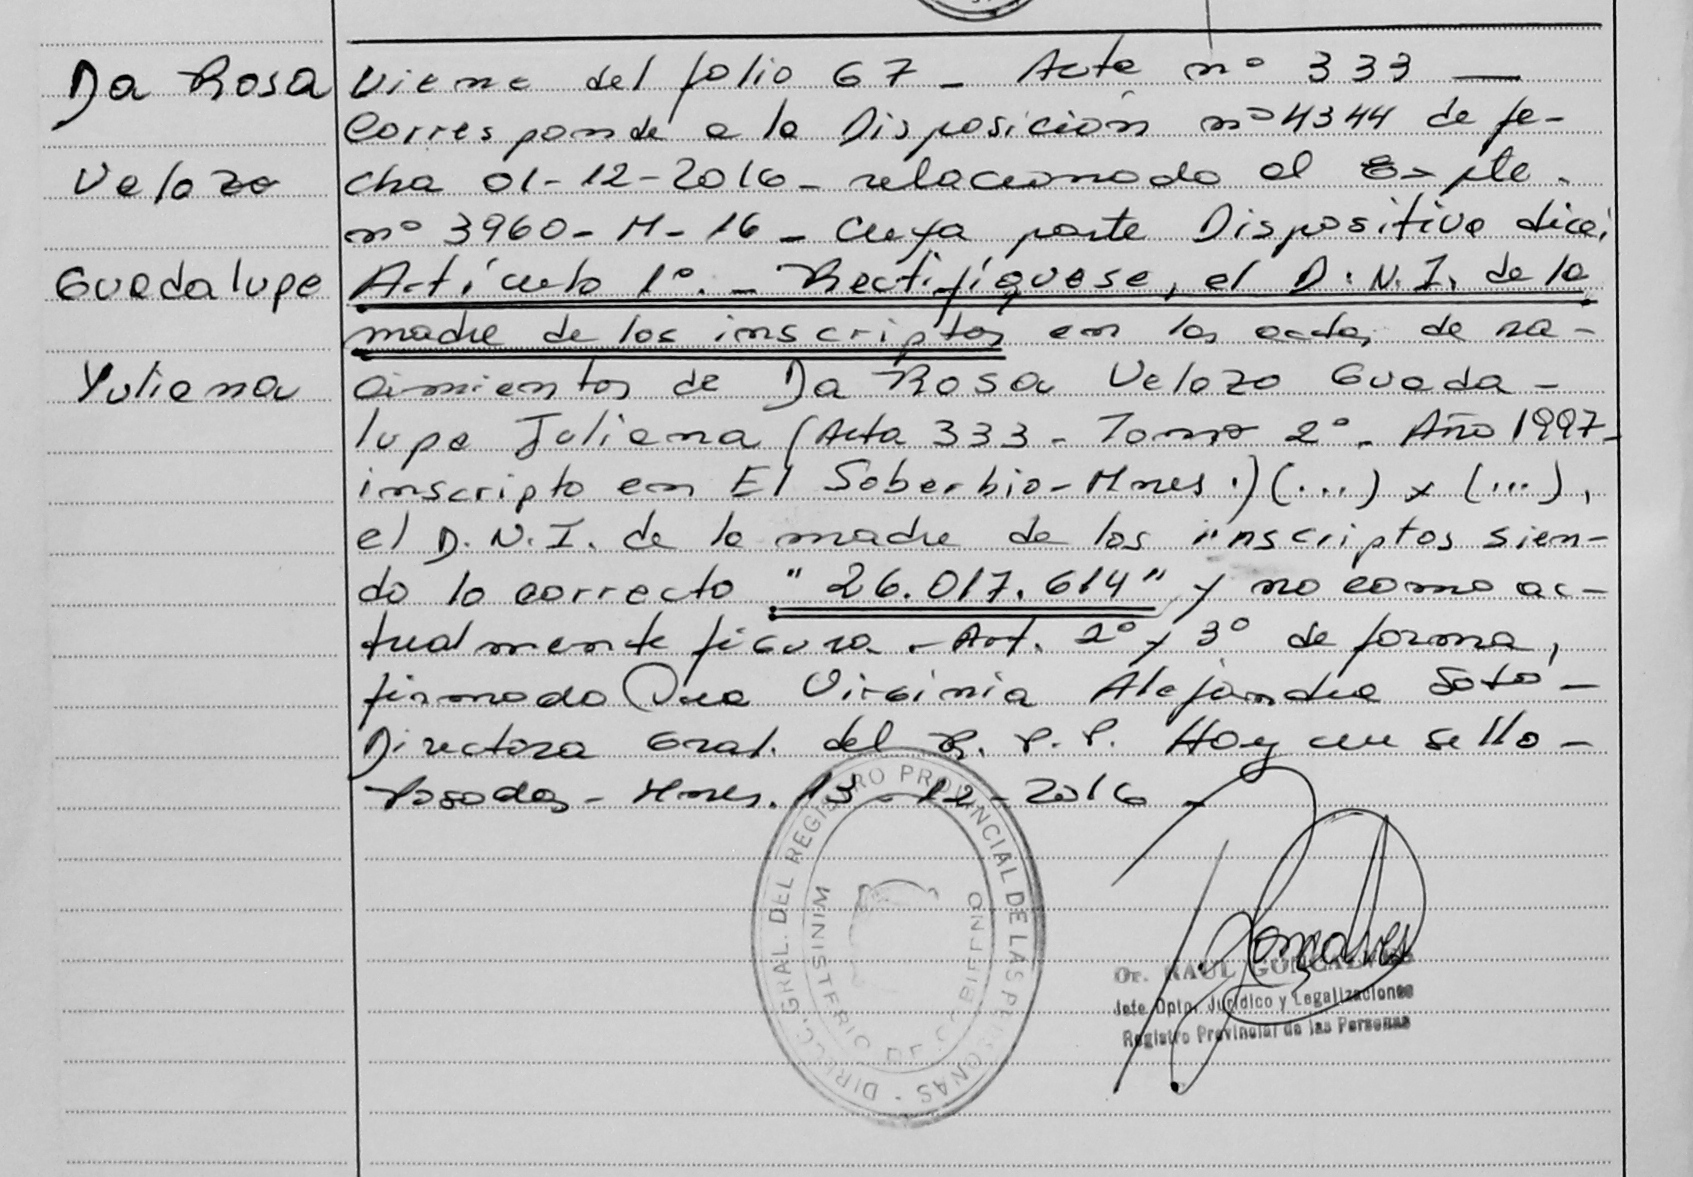 Da Rosa
Velozo
Guadalupe
Yuliana
Viene del folio 67 - Acta nº 333 —
Corresponde a la Disposición nº 4344 de fe-
cha 01-12-2016 - relacionado al Expte.
nº 3960-M-16 - Cuya parte Dispositiva dice:
Artículo 1º. - Rectifíquese, el D.N.I. de la
madre de los inscriptos en las actas de na-
cimientos de Da Rosa Velozo Guada-
lupe Juliana (Acta 333 - Tomo 2º - Año 1997-
inscripto en El Soberbio - Mnes.) (...) y (...),
el D.N.I. de la madre de los inscriptos sien-
do lo correcto "26.017.614" y no como ac-
tualmente figura. - Art. 2º y 3º de forma,
firmado Dra Virginia Alejandra Soto -
Directora Gral. del R.P.P. Hay un sello -
Posadas - Mnes. 13-12-2016 -
DIRECC. GRAL. DEL REGISTRO PROVINCIAL DE LAS PERSONAS -
MINISTERIO DE GOBIERNO
Dr. RAUL GONCALVES
Jefe Dpto. Jurídico y Legalizaciones
Registro Provincial de las Personas